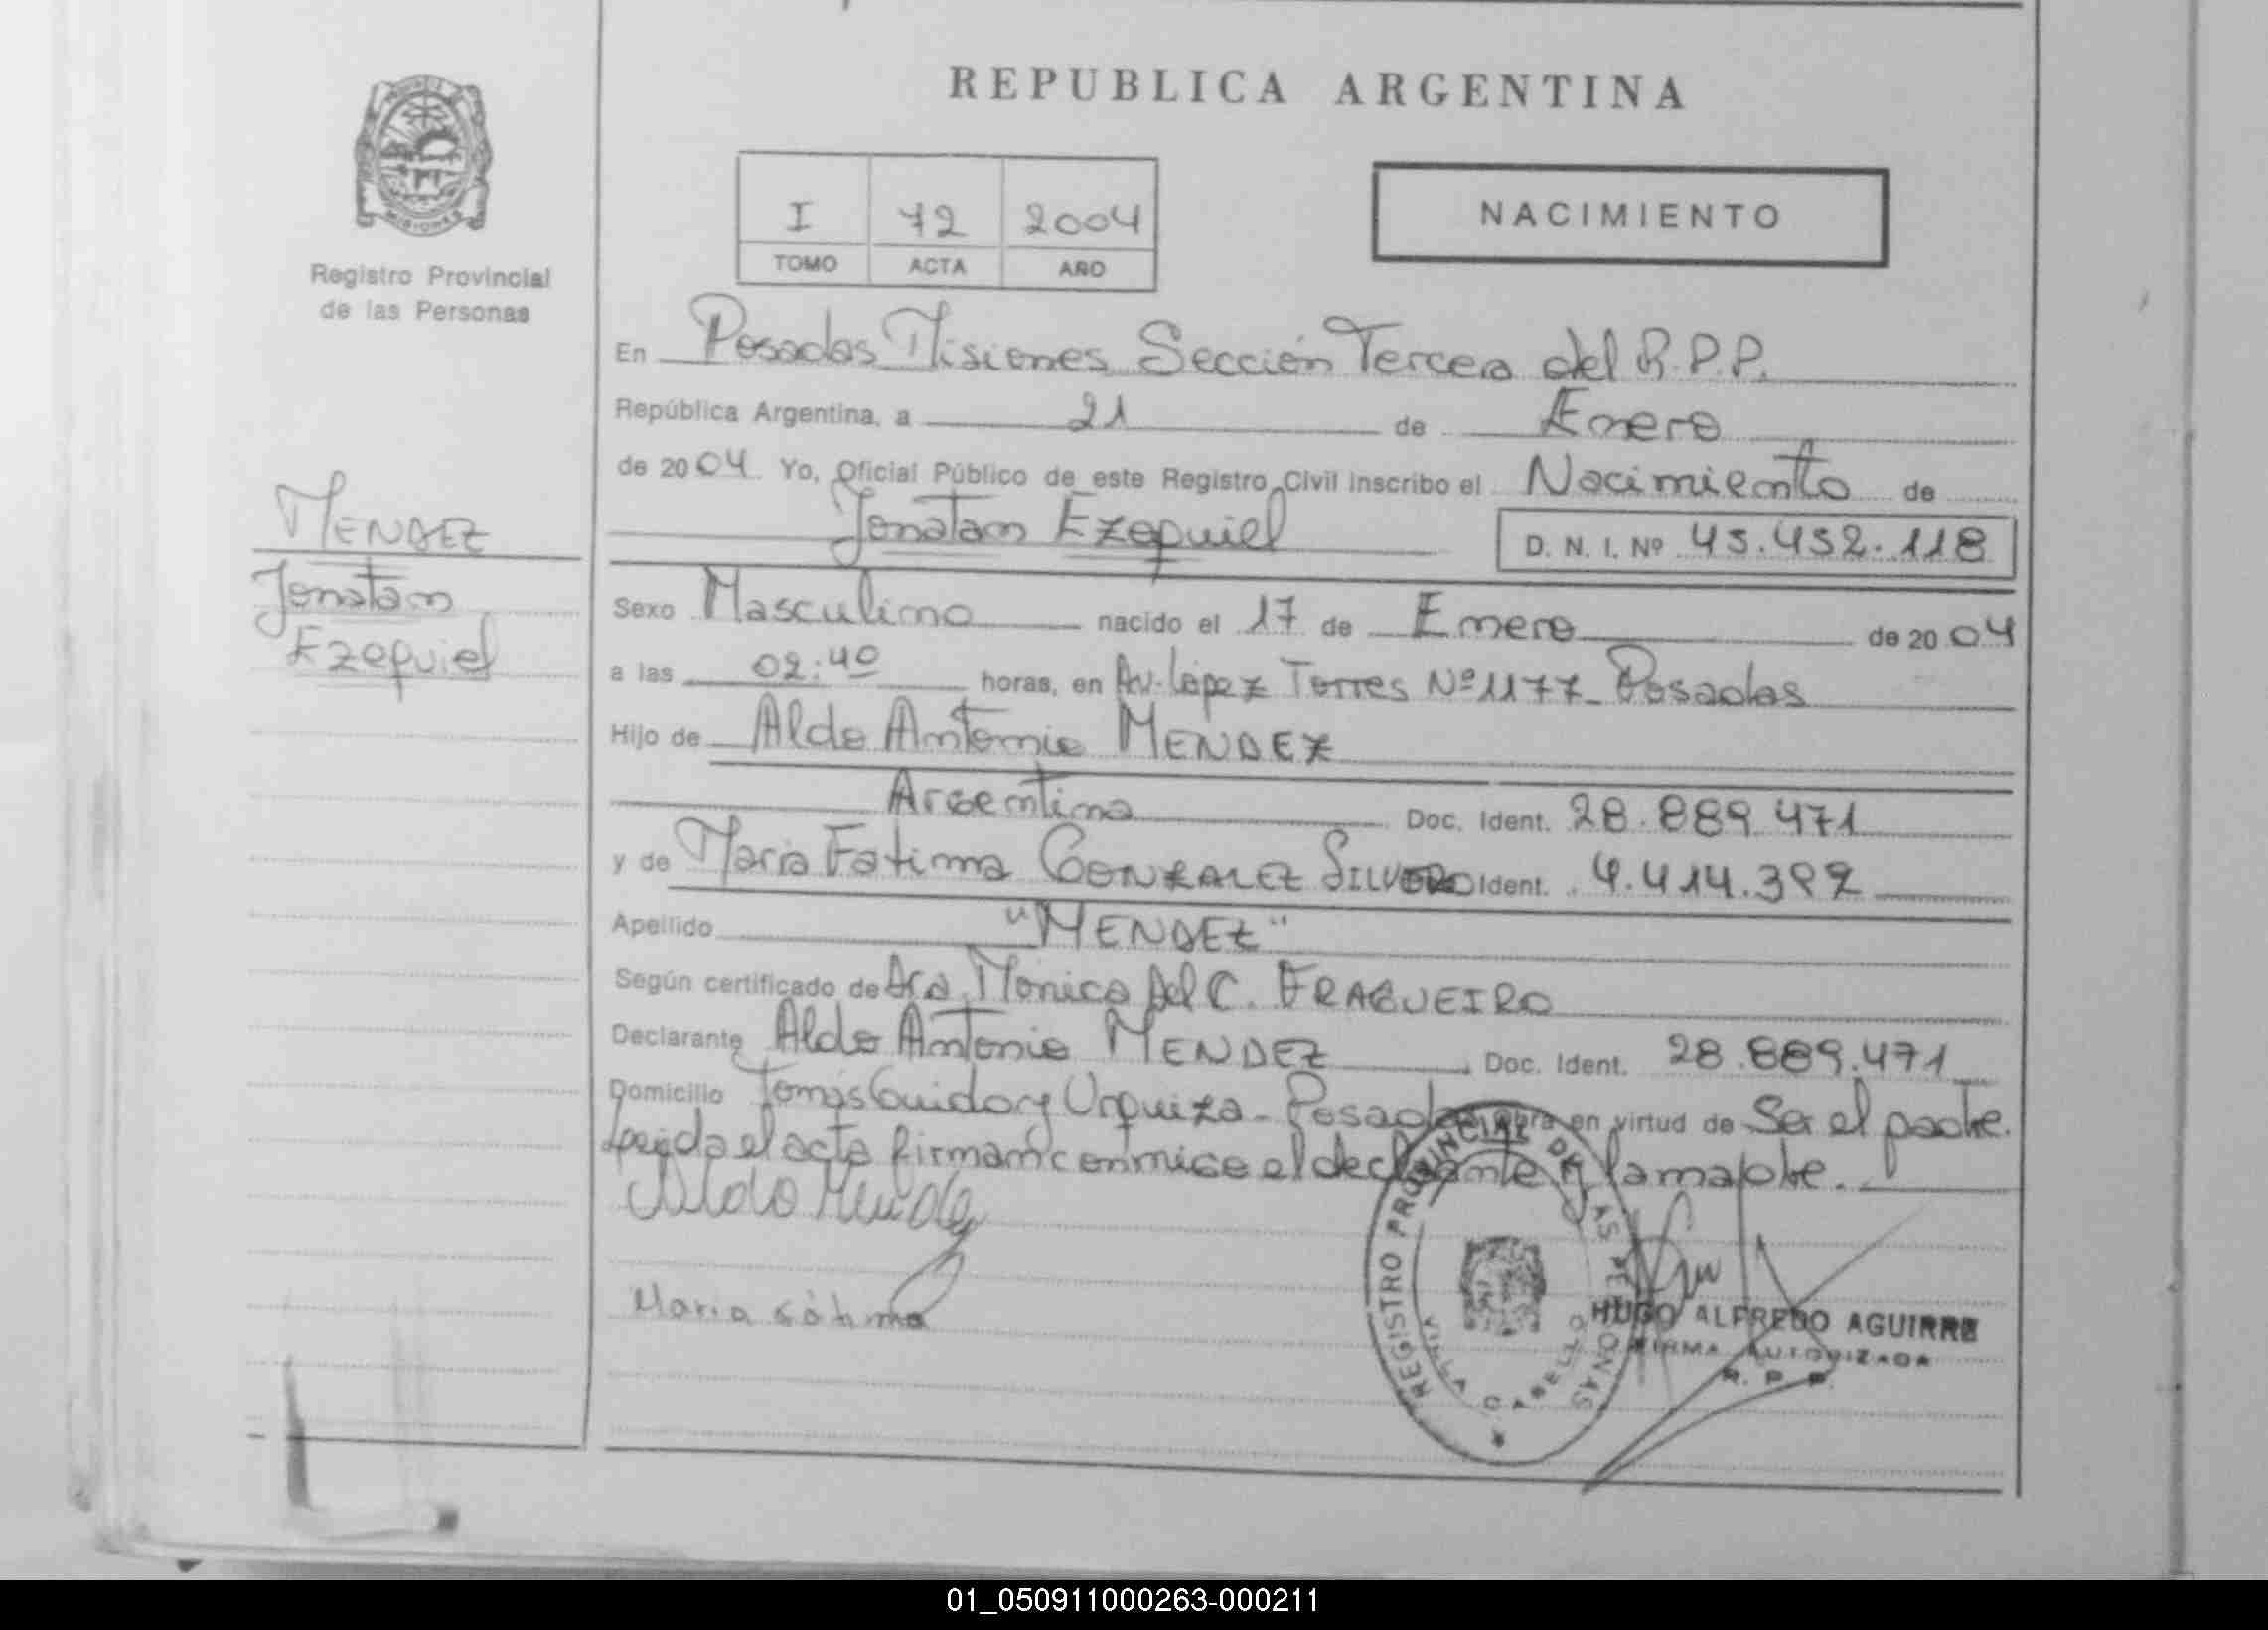 REPUBLICA ARGENTINA
MISIONES
Registro Provincial
de las Personas
I 72 2004
TOMO ACTA AÑO
NACIMIENTO
En Posadas Misiones Sección Tercera del R.P.P.
República Argentina, a 21 de Enero
de 2004 Yo, Oficial Público de este Registro Civil inscribo el Nacimiento de
Jonatan Ezequiel D. N. I. Nº 45.452.118
MENDEZ
Jonatan
Ezequiel
Sexo Masculino nacido el 17 de Enero de 2004
a las 02:40 horas, en Av. López Torres Nº 1177_ Posadas
Hijo de Aldo Antonio MENDEZ
Argentina Doc. Ident. 28.889.471
y de Maria Fatima GONZALEZ SILVERO Ident. 4.414.392
Apellido "MENDEZ"
Según certificado de Dra. Mónica del C. FRAGUEIRO
Declarante Aldo Antonio MENDEZ Doc. Ident. 28.889.471
Domicilio Tomás Guido y Urquiza - Posadas obra en virtud de Ser el padre.
Leída el acta firman conmigo el declarante y la madre.
Aldo Mendez
Maria Fátima
REGISTRO PROVINCIAL DE LAS PERSONAS
CABELLO
HUGO ALFREDO AGUIRRE
FIRMA AUTORIZADA
R. P. P.
01_050911000263-000211